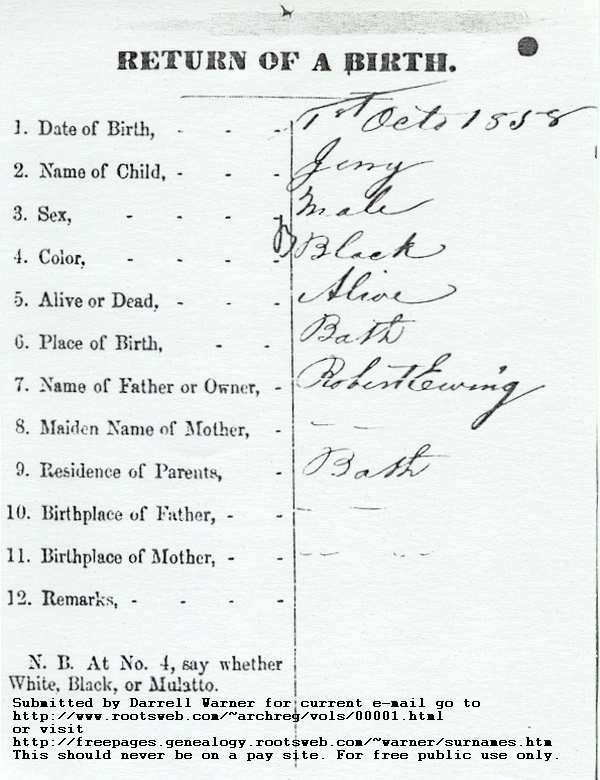 RETURN OF A BIRTH.
1. Date of Birth, - - - 1st Octo 1858
2. Name of Child, - - - Jerry
3. Sex, - - - - Male
4. Color, - - - - Black
5. Alive or Dead, - - - Alive
6. Place of Birth, - - Bath
7. Name of Father or Owner, - Robert Ewing
8. Maiden Name of Mother, - — —
9. Residence of Parents, - Bath
10. Birthplace of Father, - - — —
11. Birthplace of Mother, - - — —
12. Remarks, - - - -
N. B. At No. 4, say whether
White, Black, or Mulatto.
Submitted by Darrell Warner for current e-mail go to
http://www.rootsweb.com/~archreg/vols/00001.html
or visit
http://freepages.genealogy.rootsweb.com/~warner/surnames.htm
This should never be on a pay site. For free public use only.